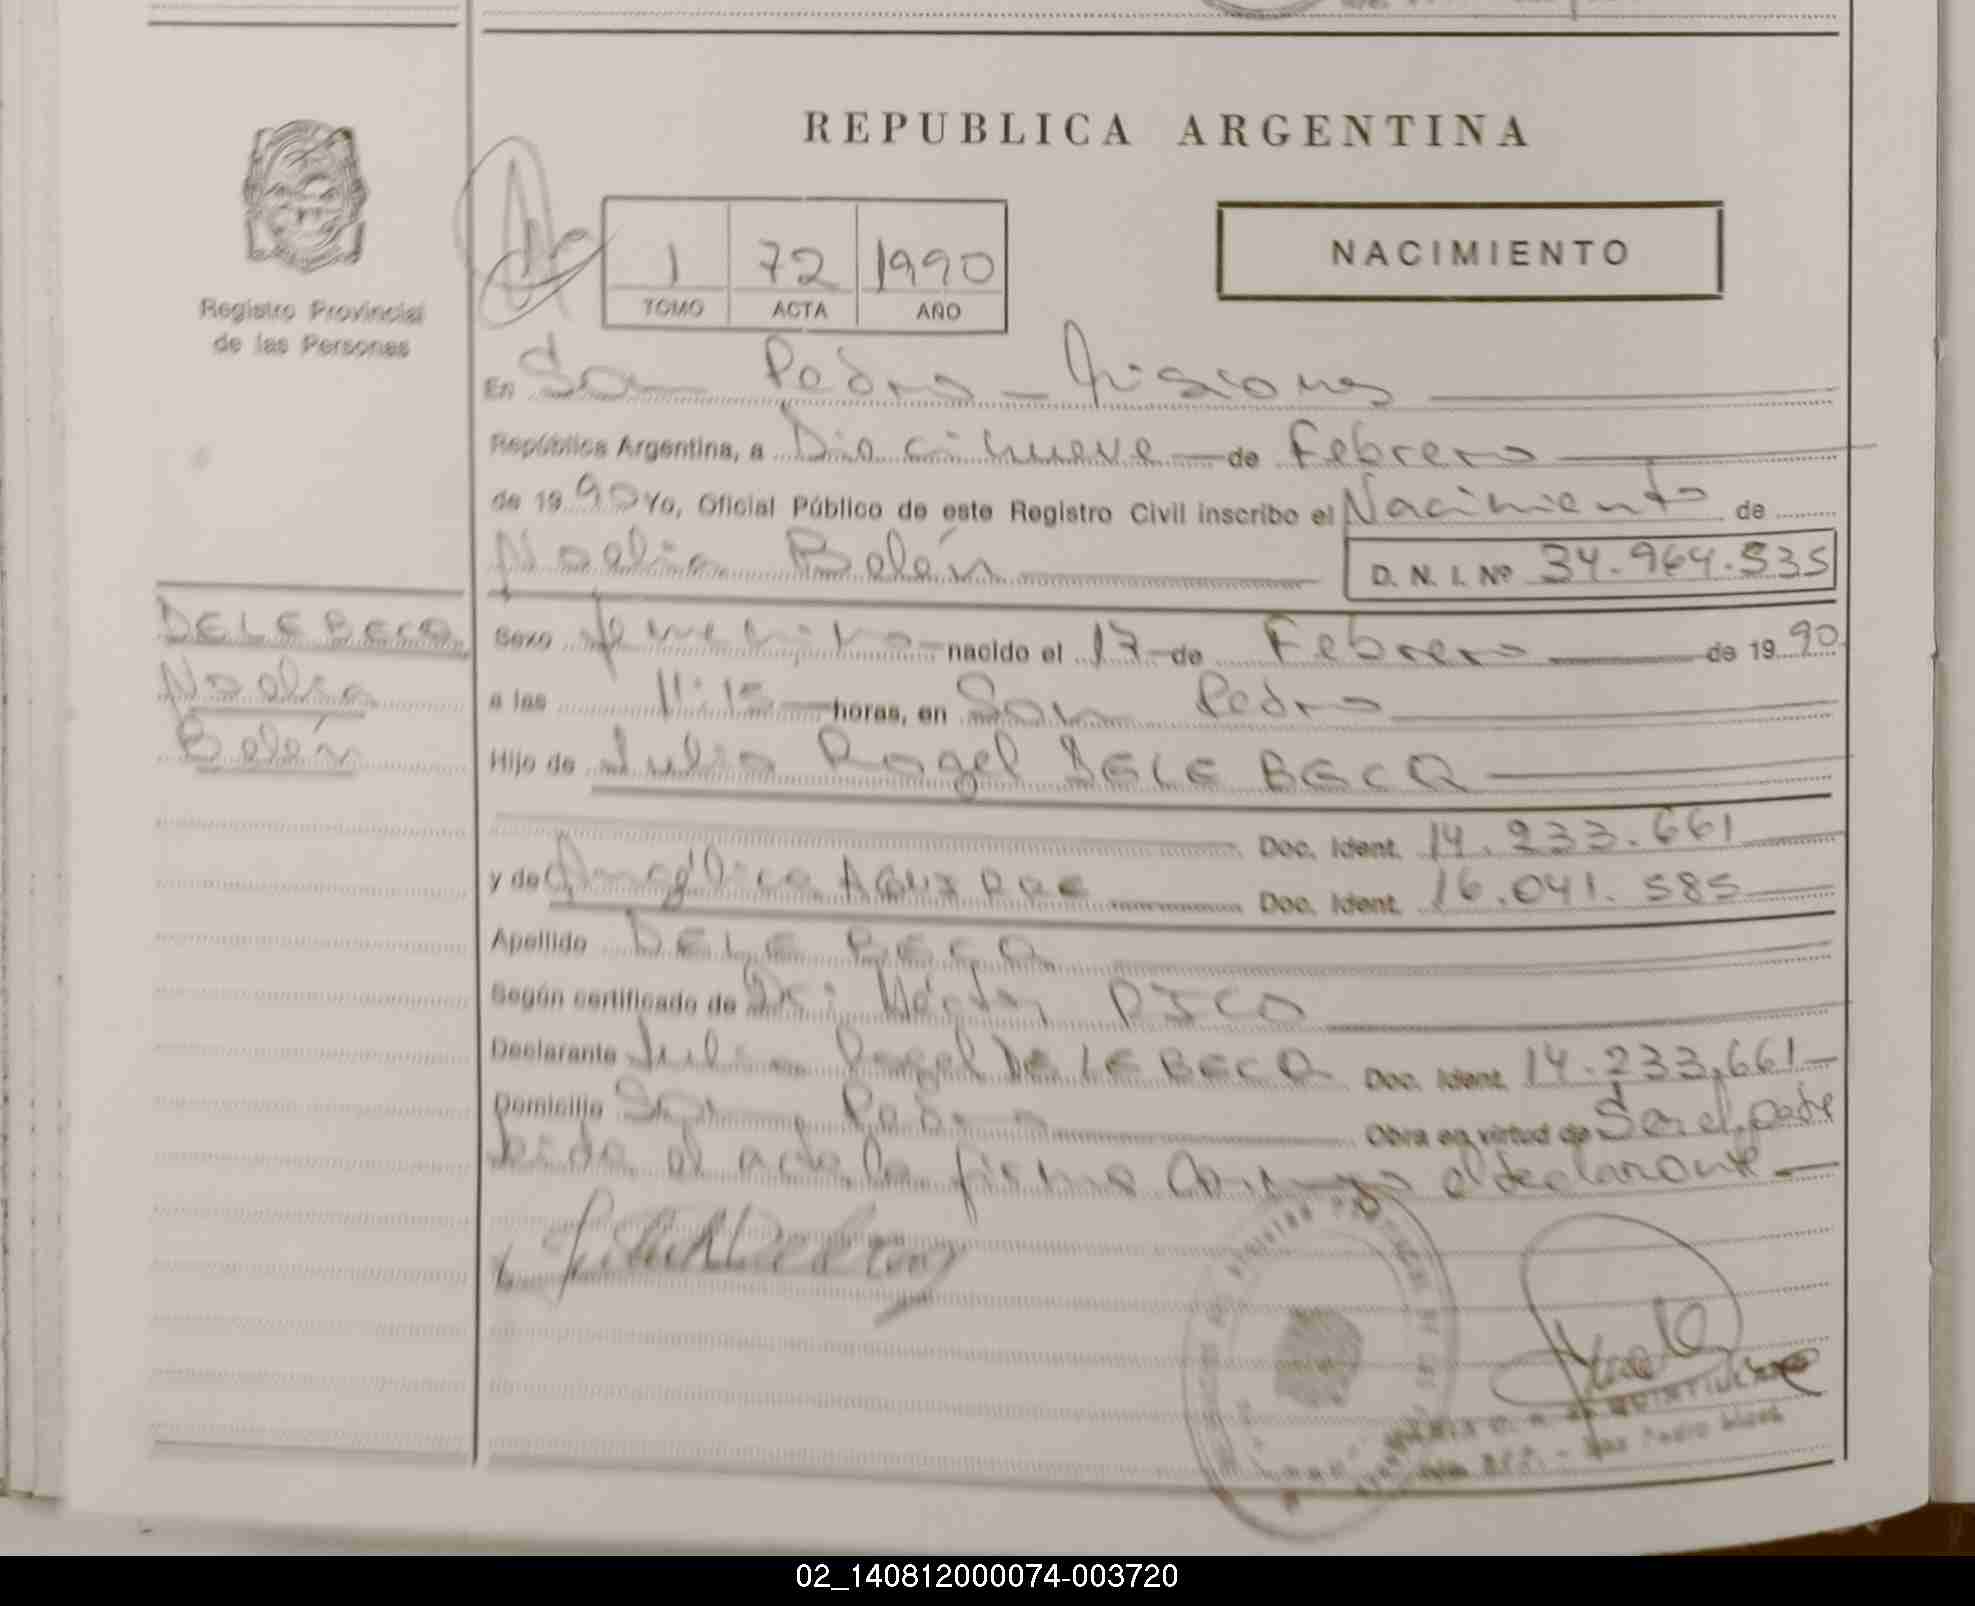 REPUBLICA ARGENTINA
1 72 1990
TOMO ACTA AÑO
NACIMIENTO
Registro Provincial
de las Personas
En San Pedro - Misiones
República Argentina, a Diecinueve de Febrero
de 1990 Yo, Oficial Público de este Registro Civil inscribo el Nacimiento de
Noelia Belén D. N. I. Nº 34.964.535
DELEBECQ
Noelia
Belén
Sexo femenino nacido el 17 de Febrero de 1990
a las 11:15 horas, en San Pedro
Hijo de Julio Rogel DELEBECQ
Doc. Ident. 14.233.661
y de Angélica Doc. Ident. 16.041.585
Apellido DELEBECQ
Según certificado de Dr: Héctor PICO
Declarante Julio Rogel DELEBECQ Doc. Ident. 14.233.661
Domicilio San Pedro Obra en virtud de Ser el padre
Leida el acta la firma Conmigo el declarante
02_140812000074-003720